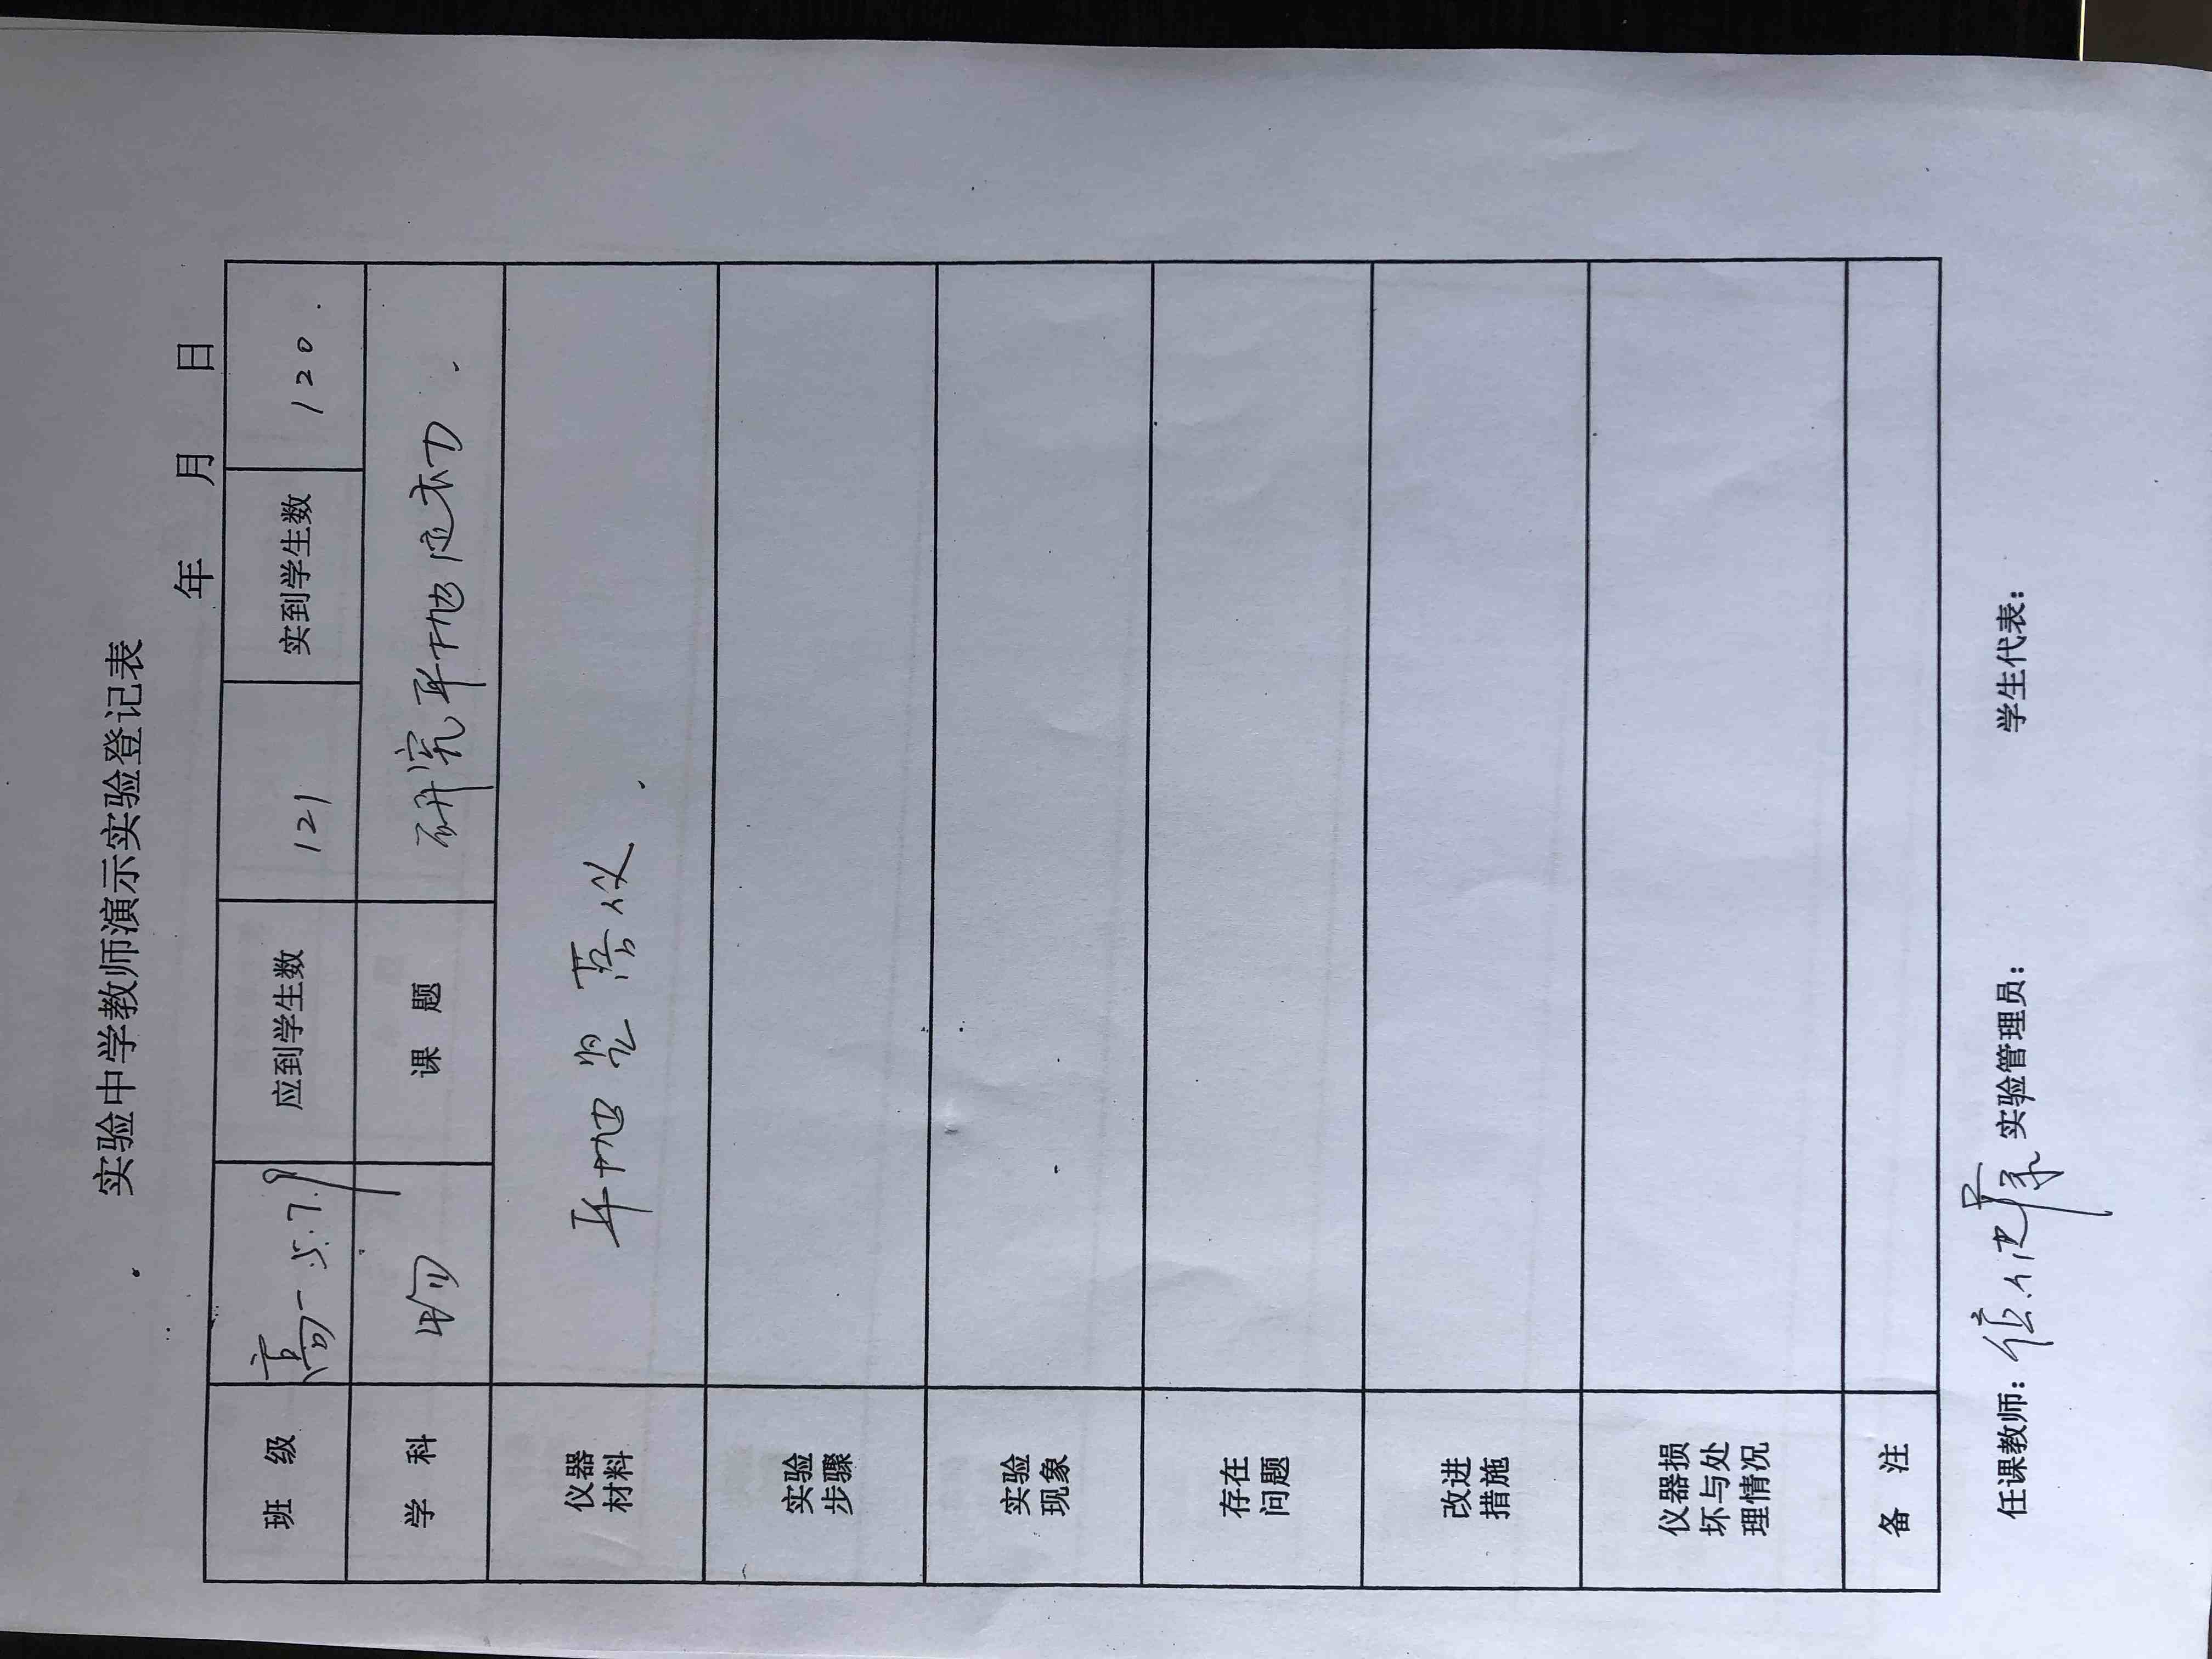 实验中学教师演示实验登记表
年 月 日
班 级 高一 5.7.9 应到学生数 121 实到学生数 120.
学 科 物 课 题 研究平抛运动.
仪器材料 平抛竖落仪.
实验步骤
实验现象
存在问题
改进措施
仪器损坏与处理情况
备 注
任课教师： 实验管理员： 学生代表：